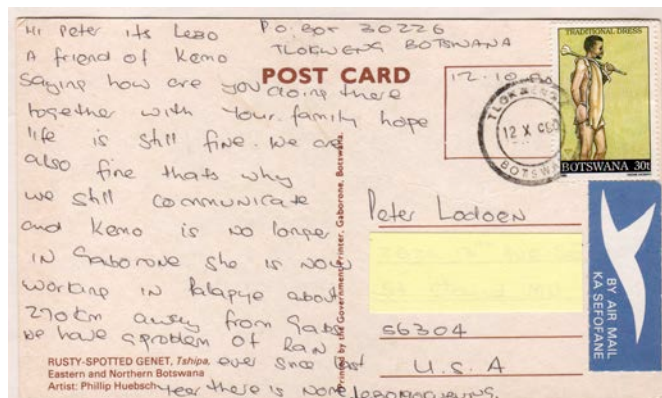 Hi Peter its Lebo
A friend of Kemo
Saying how are you doing there
together with your family hope
life is still fine. We are
also fine thats why
we still communicate
and Kemo is no longer
in Gaborone she is now
working in Palapye about
270km away from Gabs
we have a problem of Rain
ever since last
year there is none
P.O. Box 30226
TLOKWENG BOTSWANA
POST CARD
12.10
TLOKWENG
12 X
BOTSWA
TRADITIONAL DRESS
BOTSWANA 30t
Peter Lodoen
56304
U.S.A
BY AIR MAIL
KA SEFOFANE
Printed by the Government Printer, Gaborone, Botswana.
RUSTY-SPOTTED GENET, Tshipa,
Eastern and Northern Botswana
Artist: Phillip Huebsch